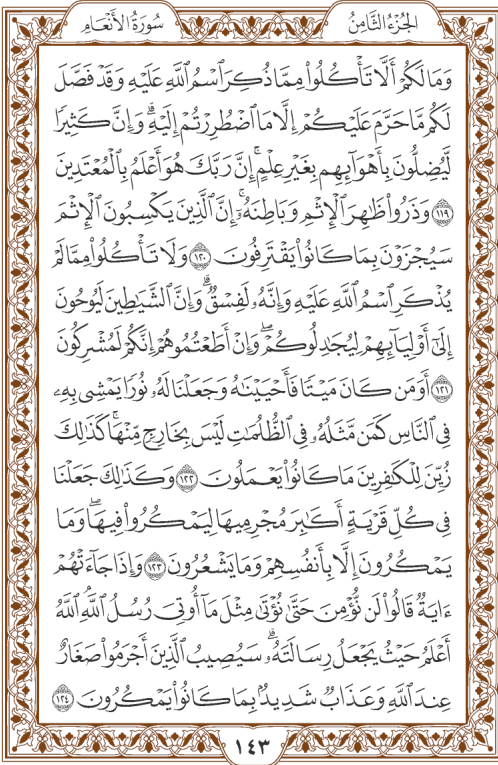 الجُزْءُ الثَّامِنُ
سُورَةُ الأَنْعَامِ
وَمَا لَكُمْ أَلَّا تَأْكُلُوا۟ مِمَّا ذُكِرَ ٱسْمُ ٱللَّهِ عَلَيْهِ وَقَدْ فَصَّلَ
لَكُم مَّا حَرَّمَ عَلَيْكُمْ إِلَّا مَا ٱضْطُرِرْتُمْ إِلَيْهِ ۗ وَإِنَّ كَثِيرًا
لَّيُضِلُّونَ بِأَهْوَآئِهِم بِغَيْرِ عِلْمٍ ۗ إِنَّ رَبَّكَ هُوَ أَعْلَمُ بِٱلْمُعْتَدِينَ
١١٩ وَذَرُوا۟ ظَٰهِرَ ٱلْإِثْمِ وَبَاطِنَهُۥٓ ۚ إِنَّ ٱلَّذِينَ يَكْسِبُونَ ٱلْإِثْمَ
سَيُجْزَوْنَ بِمَا كَانُوا۟ يَقْتَرِفُونَ ١٢٠ وَلَا تَأْكُلُوا۟ مِمَّا لَمْ
يُذْكَرِ ٱسْمُ ٱللَّهِ عَلَيْهِ وَإِنَّهُۥ لَفِسْقٌ ۗ وَإِنَّ ٱلشَّيَٰطِينَ لَيُوحُونَ
إِلَىٰٓ أَوْلِيَآئِهِمْ لِيُجَٰدِلُوكُمْ ۖ وَإِنْ أَطَعْتُمُوهُمْ إِنَّكُمْ لَمُشْرِكُونَ
١٢١ أَوَمَن كَانَ مَيْتًا فَأَحْيَيْنَٰهُ وَجَعَلْنَا لَهُۥ نُورًا يَمْشِى بِهِۦ
فِى ٱلنَّاسِ كَمَن مَّثَلُهُۥ فِى ٱلظُّلُمَٰتِ لَيْسَ بِخَارِجٍ مِّنْهَا ۚ كَذَٰلِكَ
زُيِّنَ لِلْكَٰفِرِينَ مَا كَانُوا۟ يَعْمَلُونَ ١٢٢ وَكَذَٰلِكَ جَعَلْنَا
فِى كُلِّ قَرْيَةٍ أَكَٰبِرَ مُجْرِمِيهَا لِيَمْكُرُوا۟ فِيهَا ۖ وَمَا
يَمْكُرُونَ إِلَّا بِأَنفُسِهِمْ وَمَا يَشْعُرُونَ ١٢٣ وَإِذَا جَآءَتْهُمْ
ءَايَةٌ قَالُوا۟ لَن نُّؤْمِنَ حَتَّىٰ نُؤْتَىٰ مِثْلَ مَآ أُوتِىَ رُسُلُ ٱللَّهِ ۘ ٱللَّهُ
أَعْلَمُ حَيْثُ يَجْعَلُ رِسَالَتَهُۥ ۗ سَيُصِيبُ ٱلَّذِينَ أَجْرَمُوا۟ صَغَارٌ
عِندَ ٱللَّهِ وَعَذَابٌ شَدِيدٌۢ بِمَا كَانُوا۟ يَمْكُرُونَ ١٢٤
١٤٣